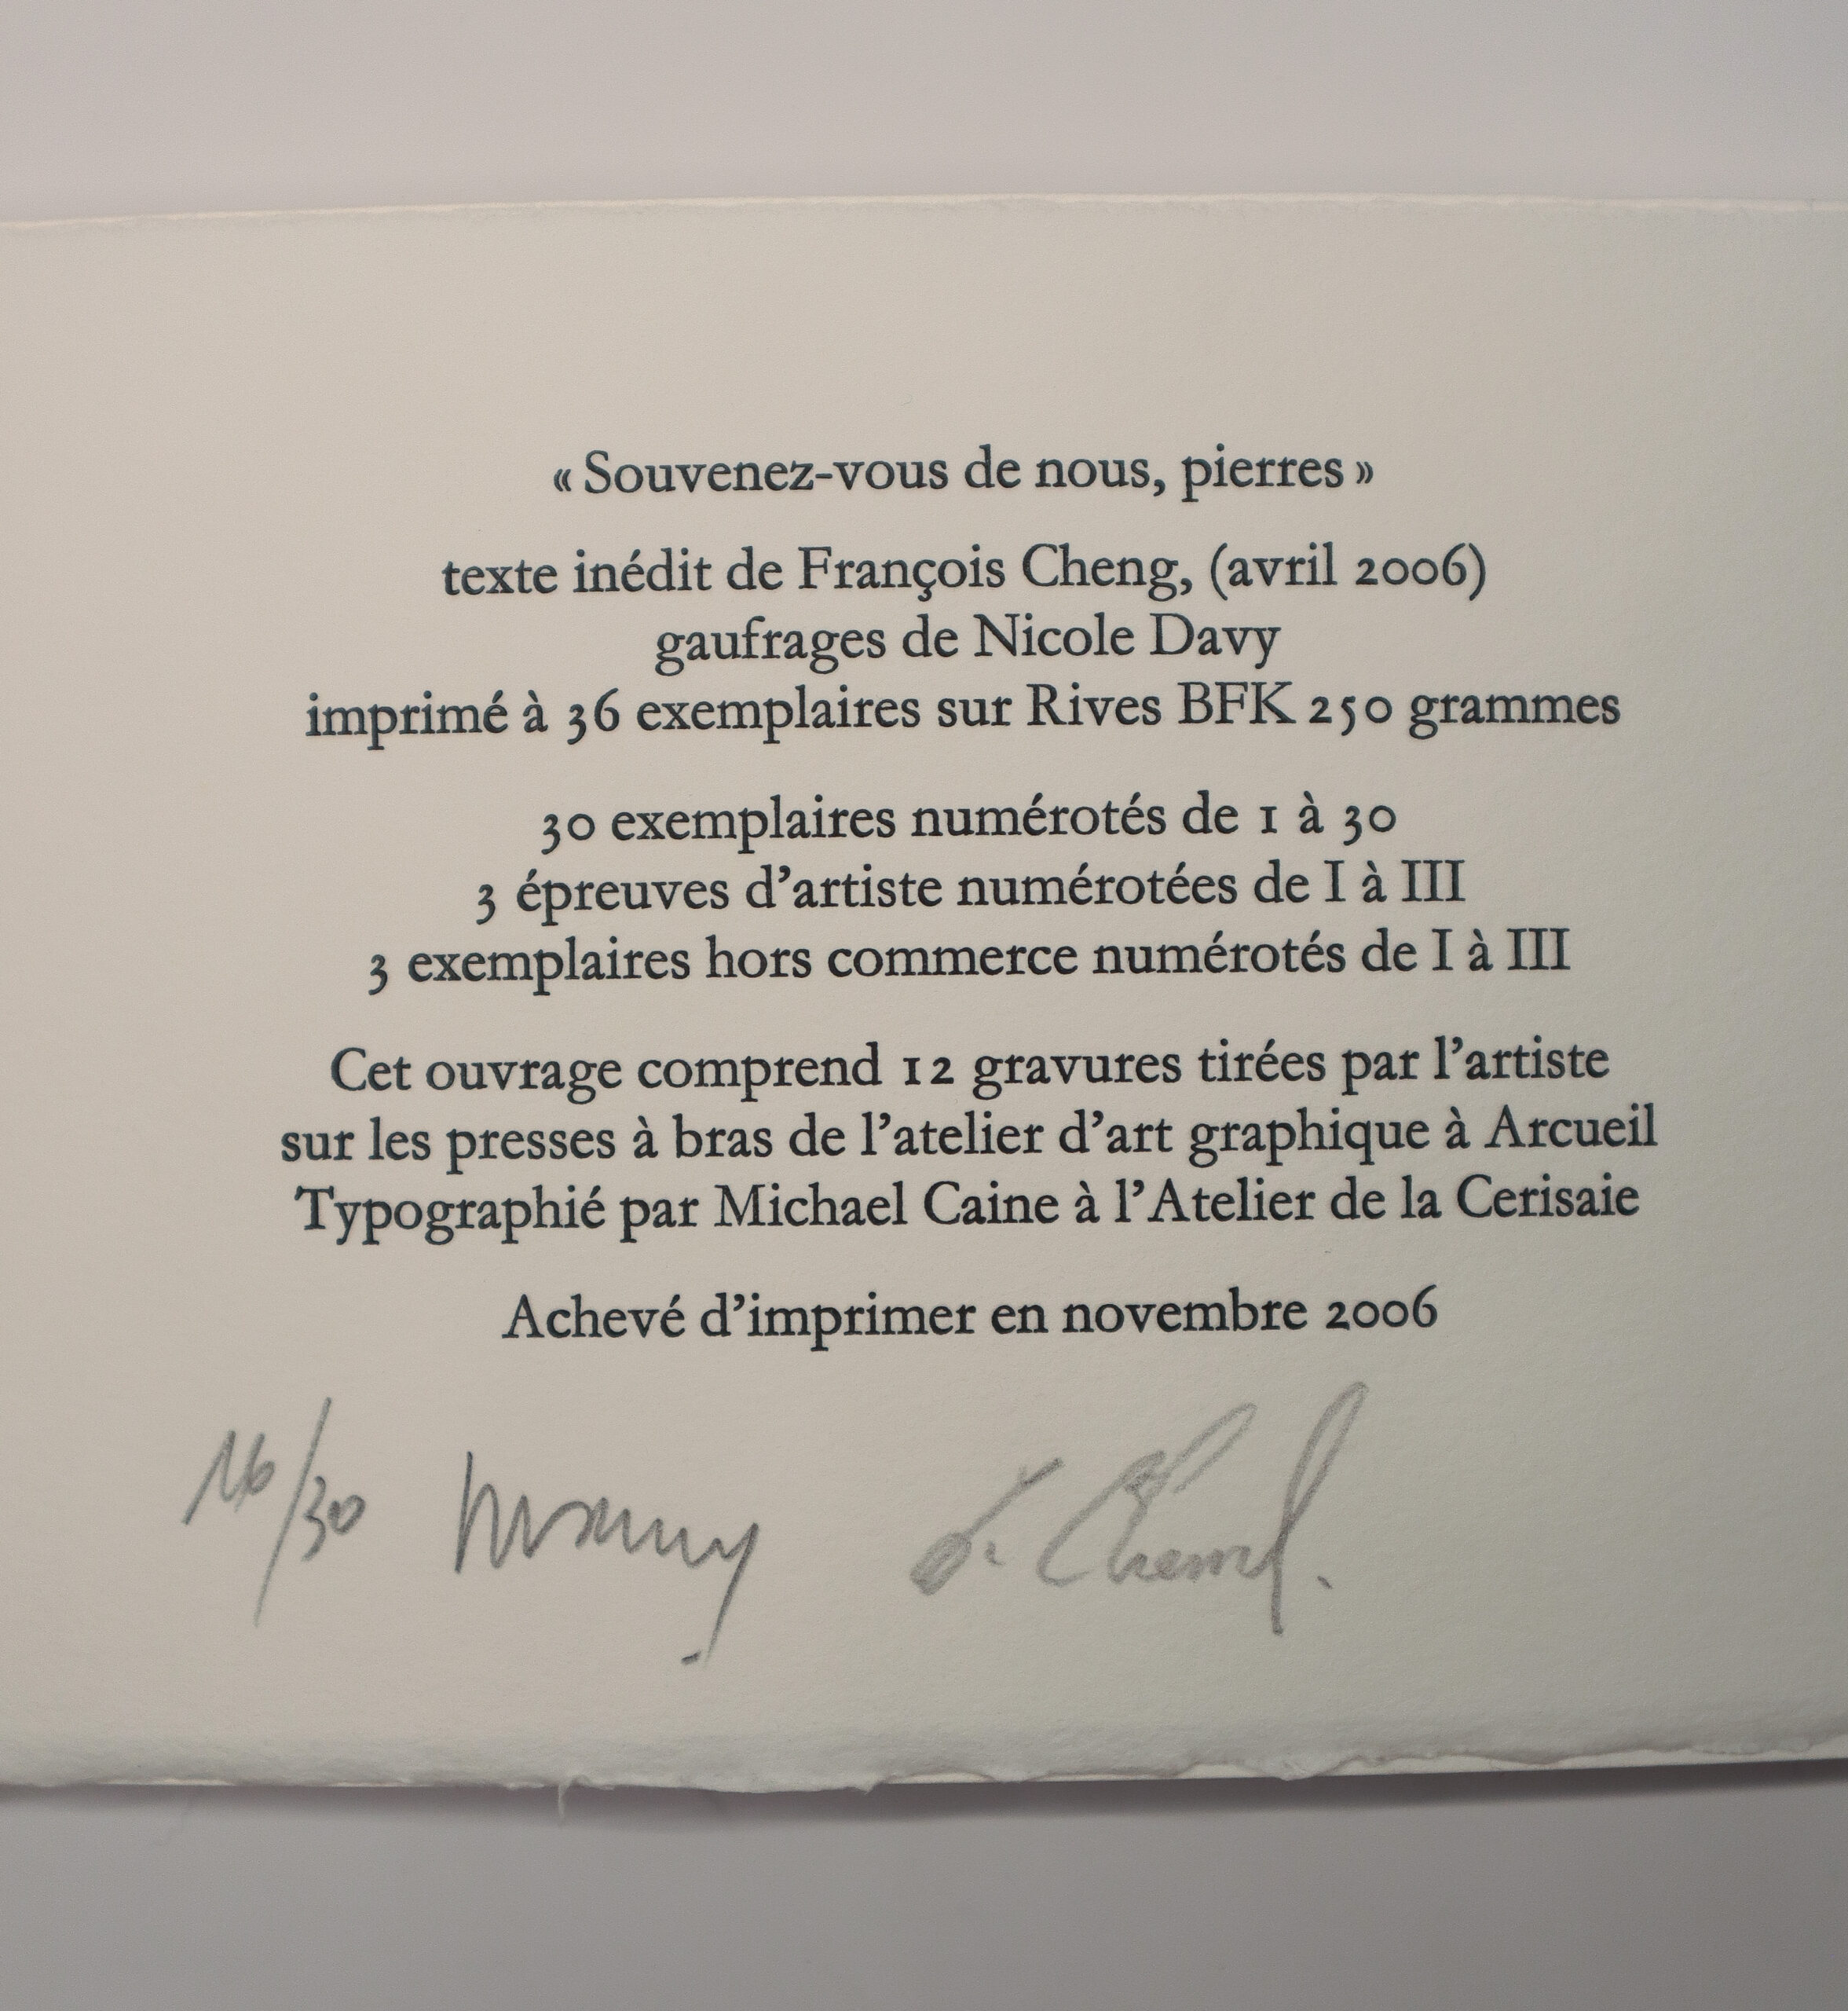 « Souvenez-vous de nous, pierres »
texte inédit de François Cheng, (avril 2006)
gaufrages de Nicole Davy
imprimé à 36 exemplaires sur Rives BFK 250 grammes
30 exemplaires numérotés de 1 à 30
3 épreuves d’artiste numérotées de I à III
3 exemplaires hors commerce numérotés de I à III
Cet ouvrage comprend 12 gravures tirées par l’artiste
sur les presses à bras de l’atelier d’art graphique à Arcueil
Typographié par Michael Caine à l’Atelier de la Cerisaie
Achevé d’imprimer en novembre 2006
16/30 F. Cheng.